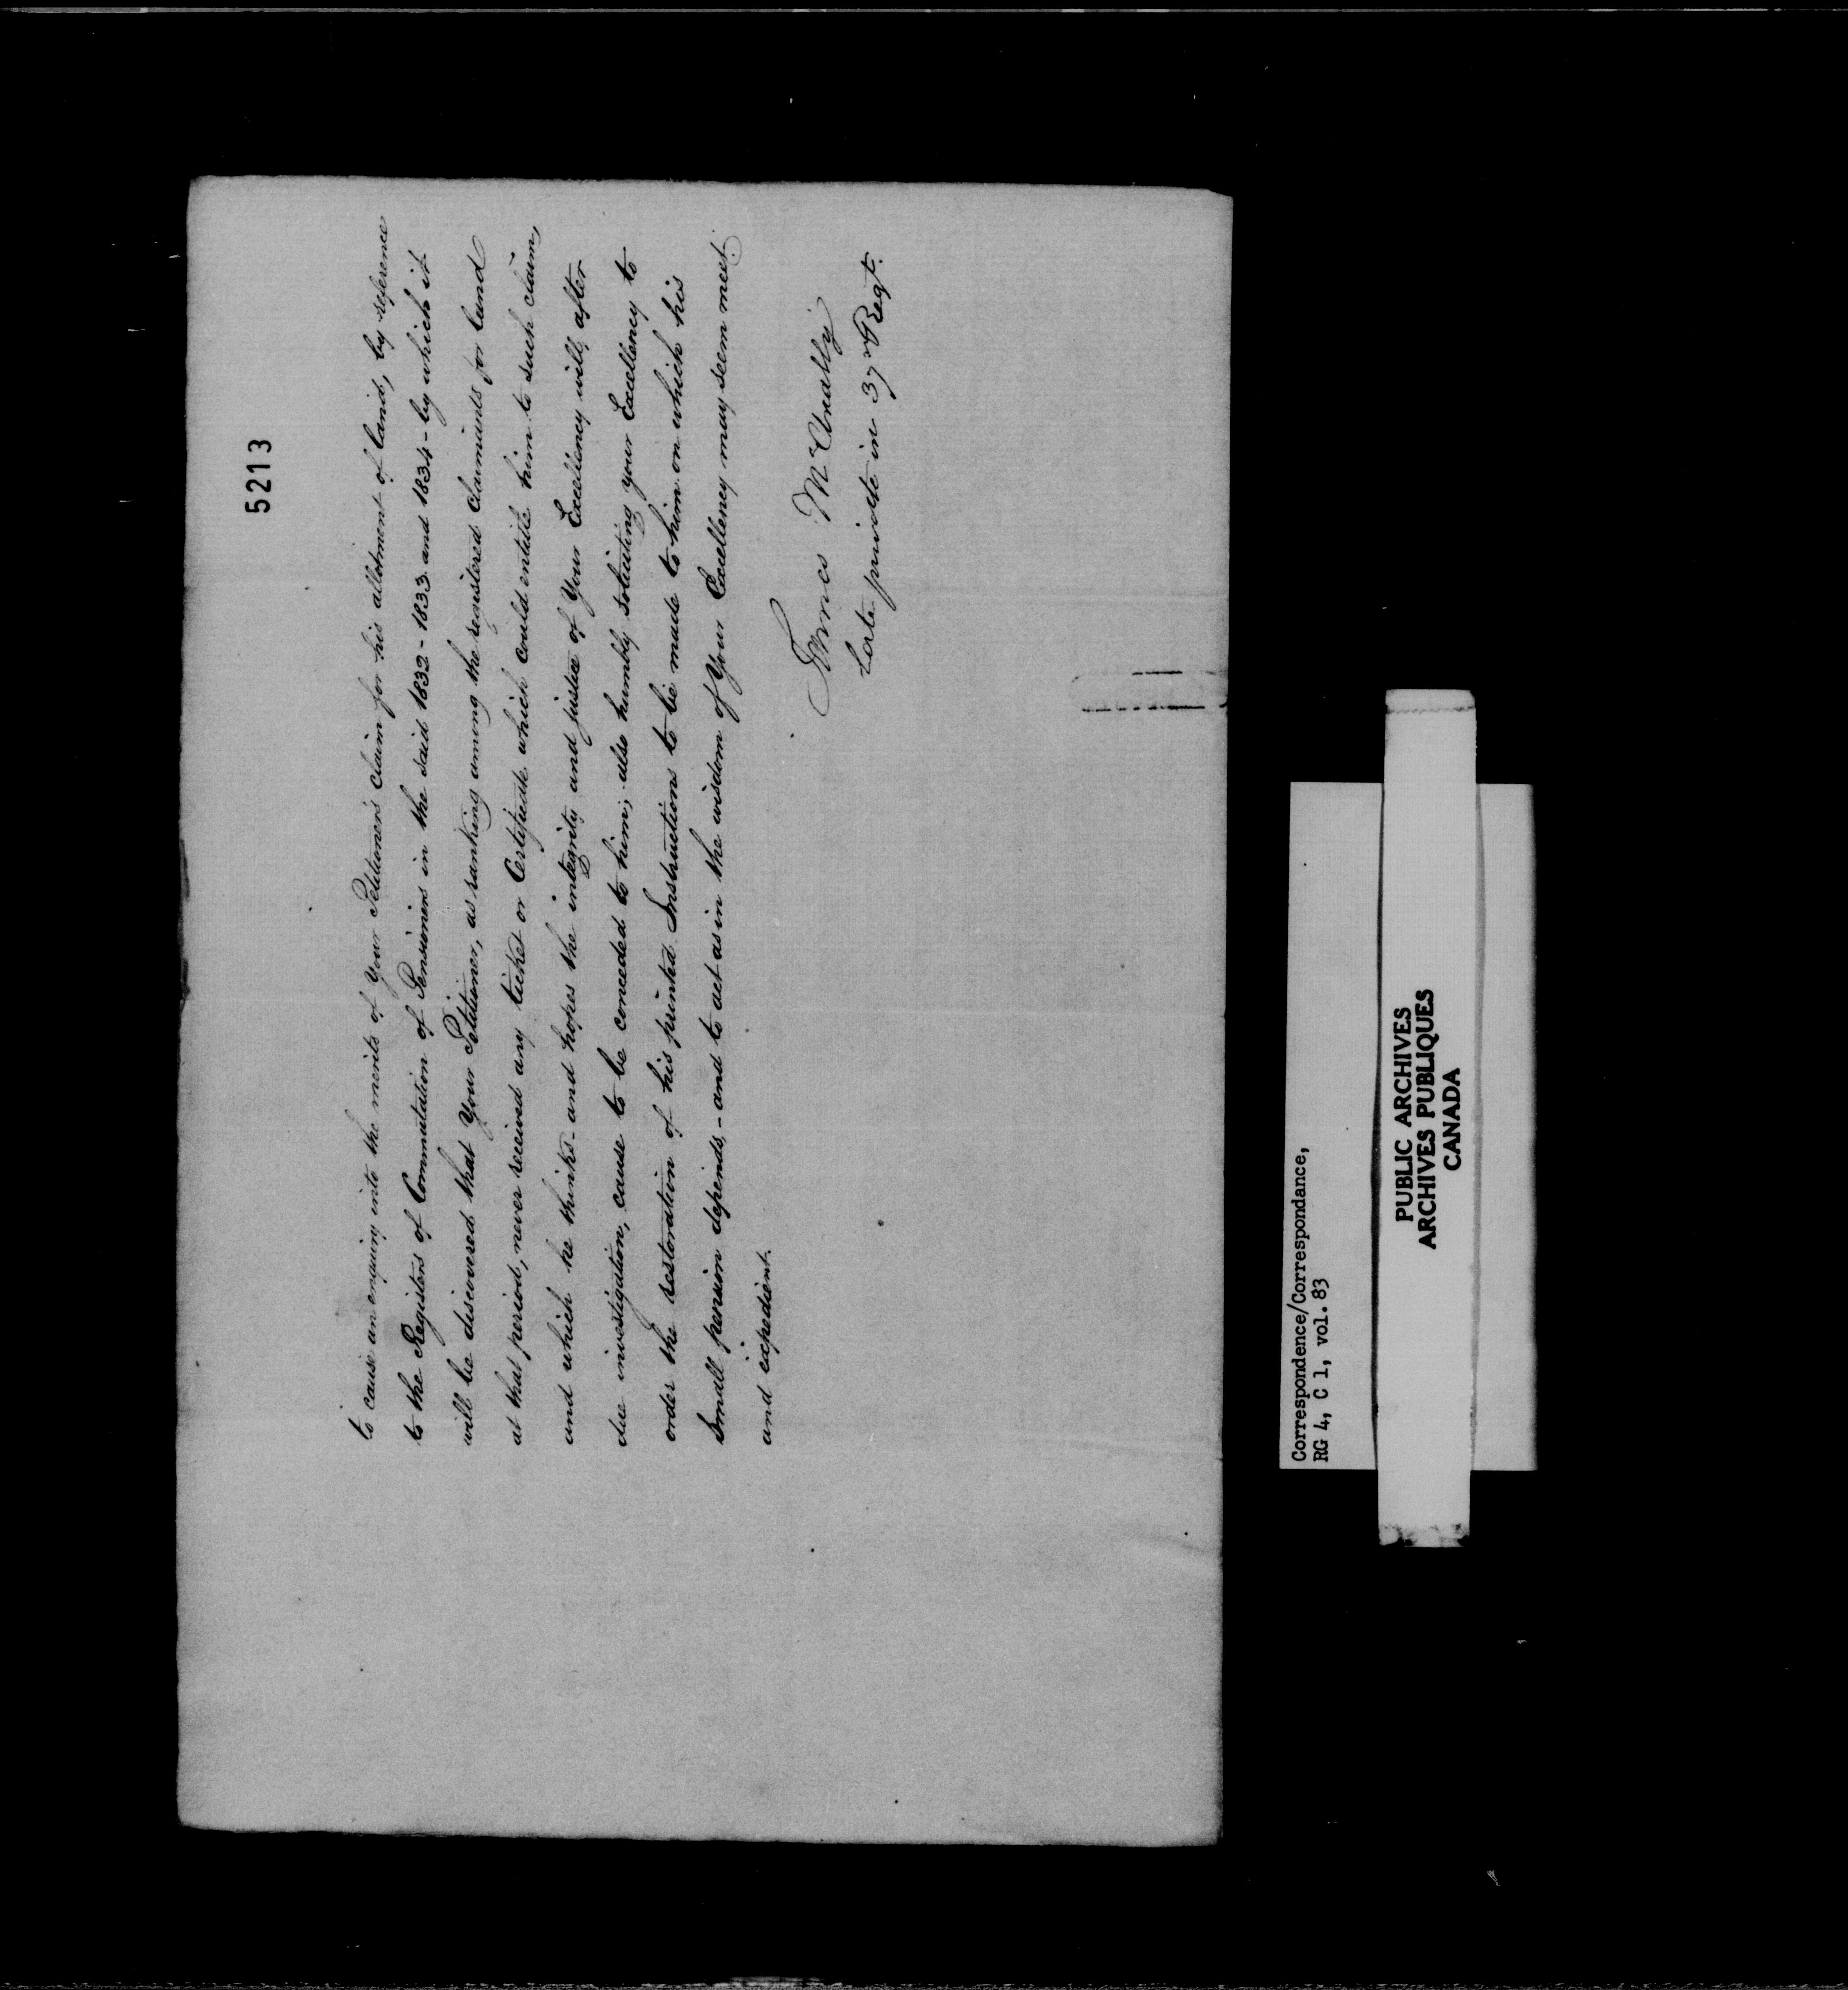 5213
to cause an enquiry into the merits of Your Petitioner's claim for his allotment of land, by reference
to the Registers of Commutation of Pensioners in the said 1832 - 1833 and 1834 - by which it
will be discovered that Your Petitioner, as ranking among the registered claimants for land
at that period, never received any ticket or Certificate which could entitle him to such claim,
and which he thinks - and hopes the integrity and justice of Your Excellency will, after
due investigation, cause to be conceded to him; also humbly soliciting your Excellency to
order the restoration of his printed Instructions to be made to him on which his
small pension depends, - and to act as in the wisdom of Your Excellency may seem meet
and expedient.
James McAnally
Late private in 37 Regt.
Correspondence/Correspondance,
RG 4, C 1, vol. 83
PUBLIC ARCHIVES
ARCHIVES PUBLIQUES
CANADA